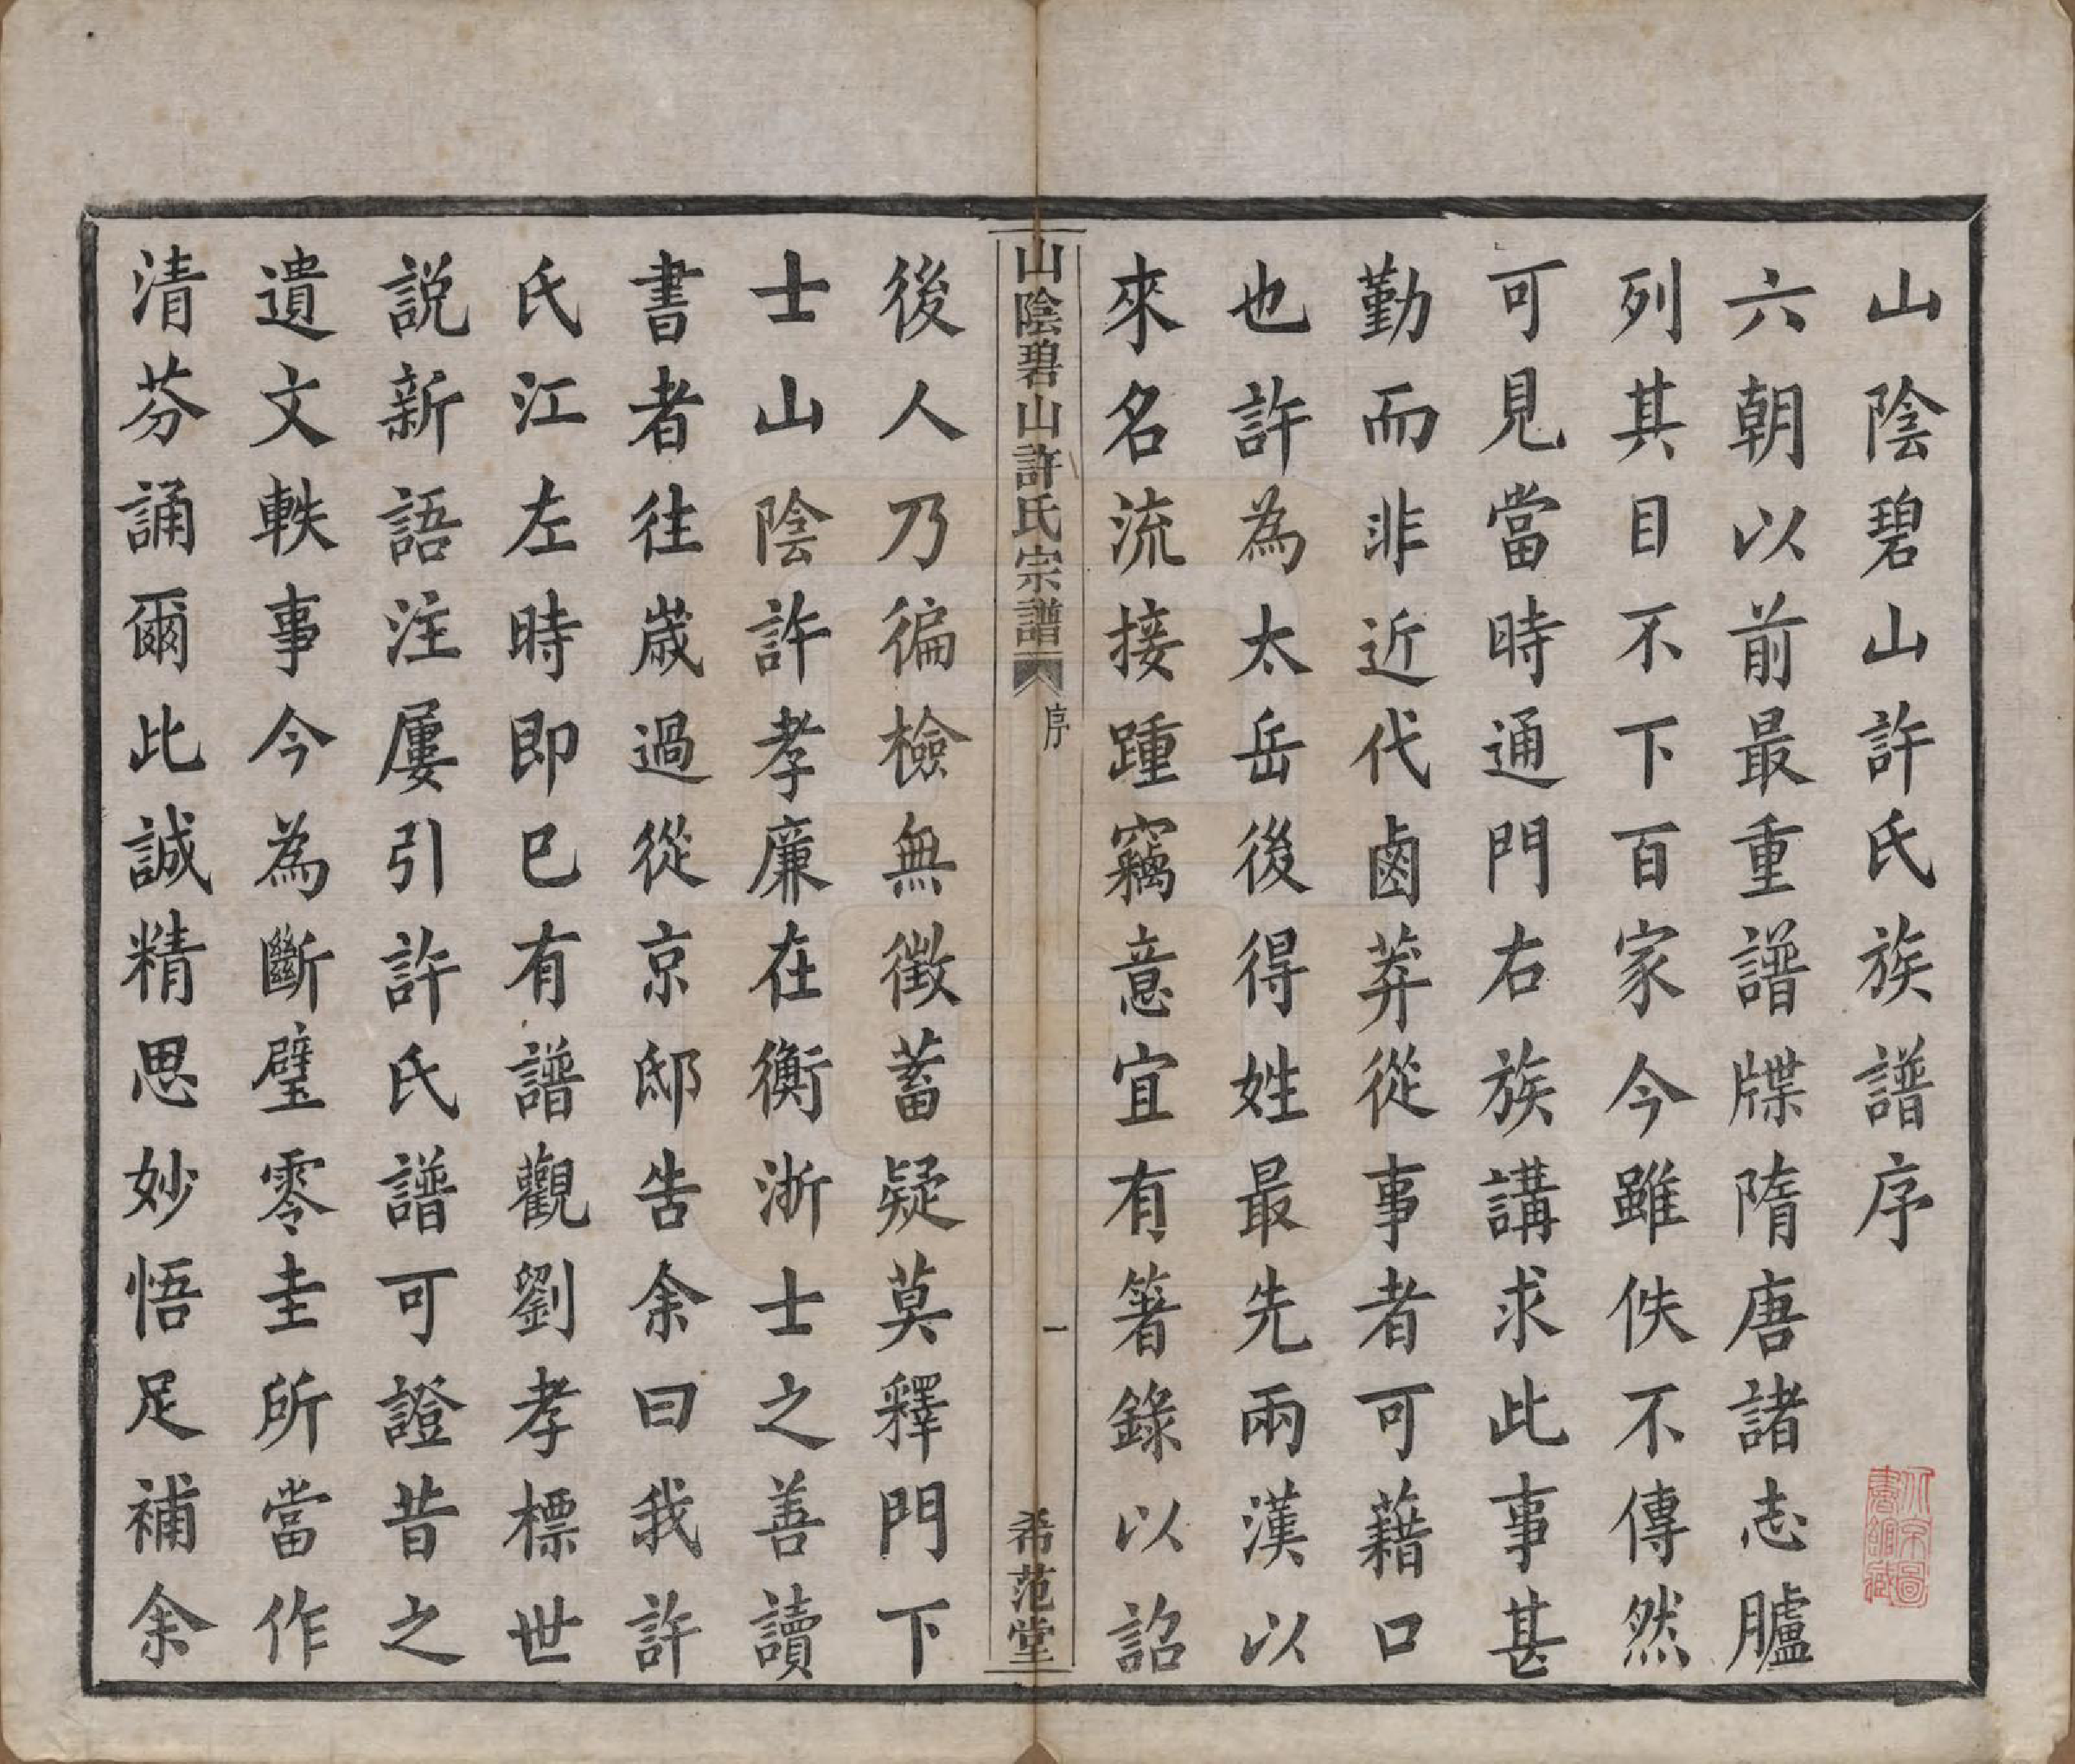 山陰碧山許氏族譜序
六朝以前最重譜牒隋唐諸志臚
列其目不下百家今雖佚不傳然
可見當時通門右族講求此事甚
勤而非近代鹵莽從事者可藉口
也許為太岳後得姓最先兩漢以
來名流接踵竊意宜有箸錄以詔
山陰碧山許氏宗譜
序
一
希范堂
後人乃徧檢無徵蓄疑莫釋門下
士山陰許孝廉在衡浙士之善讀
書者往歲過從京邸告余曰我許
氏江左時即已有譜觀劉孝標世
說新語注屢引許氏譜可證昔之
遺文軼事今為斷璧零圭所當作
清芬誦爾比誠精思妙悟足補余